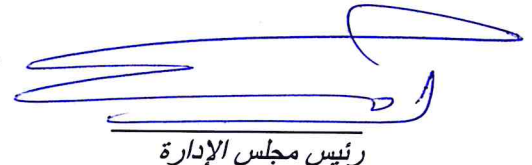 رئيس مجلس الإدارة